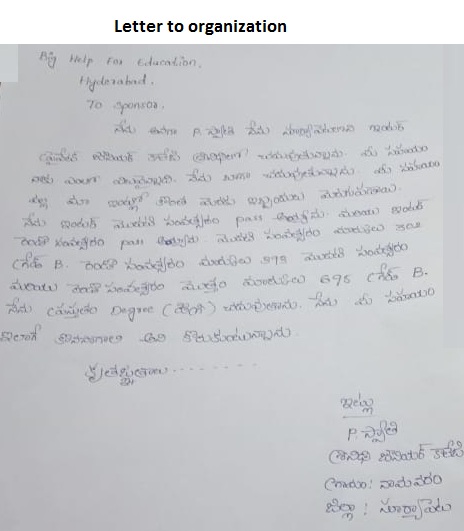 Letter to organization
Big Help For Education,
Hyderabad.
To Sponsor,
నేను అనగా P. స్వాతి నేను ఇంటర్
జూనియర్ కాలేజి చదువుతున్నాను. మీ సహాయం
నాకు ఎంతగా నేను బాగా చదువుతున్నాను. మీ సహాయం
వల్ల మా ఇంట్లో కొంత మేరకు ఇబ్బందులు
నేను ఇంటర్ మొదటి సంవత్సరం pass అయ్యాను. మరియు ఇంటర్
రెండో సంవత్సరం pass అయ్యాను. మొదటి సంవత్సరం మార్కులు
గ్రేడ్ B. రెండో సంవత్సరం మార్కులు మొదటి సంవత్సరం
మరియు రెండో సంవత్సరం మొత్తం మార్కులు 695 గ్రేడ్ B.
నేను ప్రస్తుతం Degree (డిగ్రీ) చదువుతాను. నేను మీ సహాయం
ఇలాగే కొనసాగాలి అని కోరుకుంటున్నాను.
కృతజ్ఞతలు........
ఇట్లు
P. స్వాతి
జూనియర్ కాలేజి
గ్రామం: నామవరం
జిల్లా: సూర్యాపేట